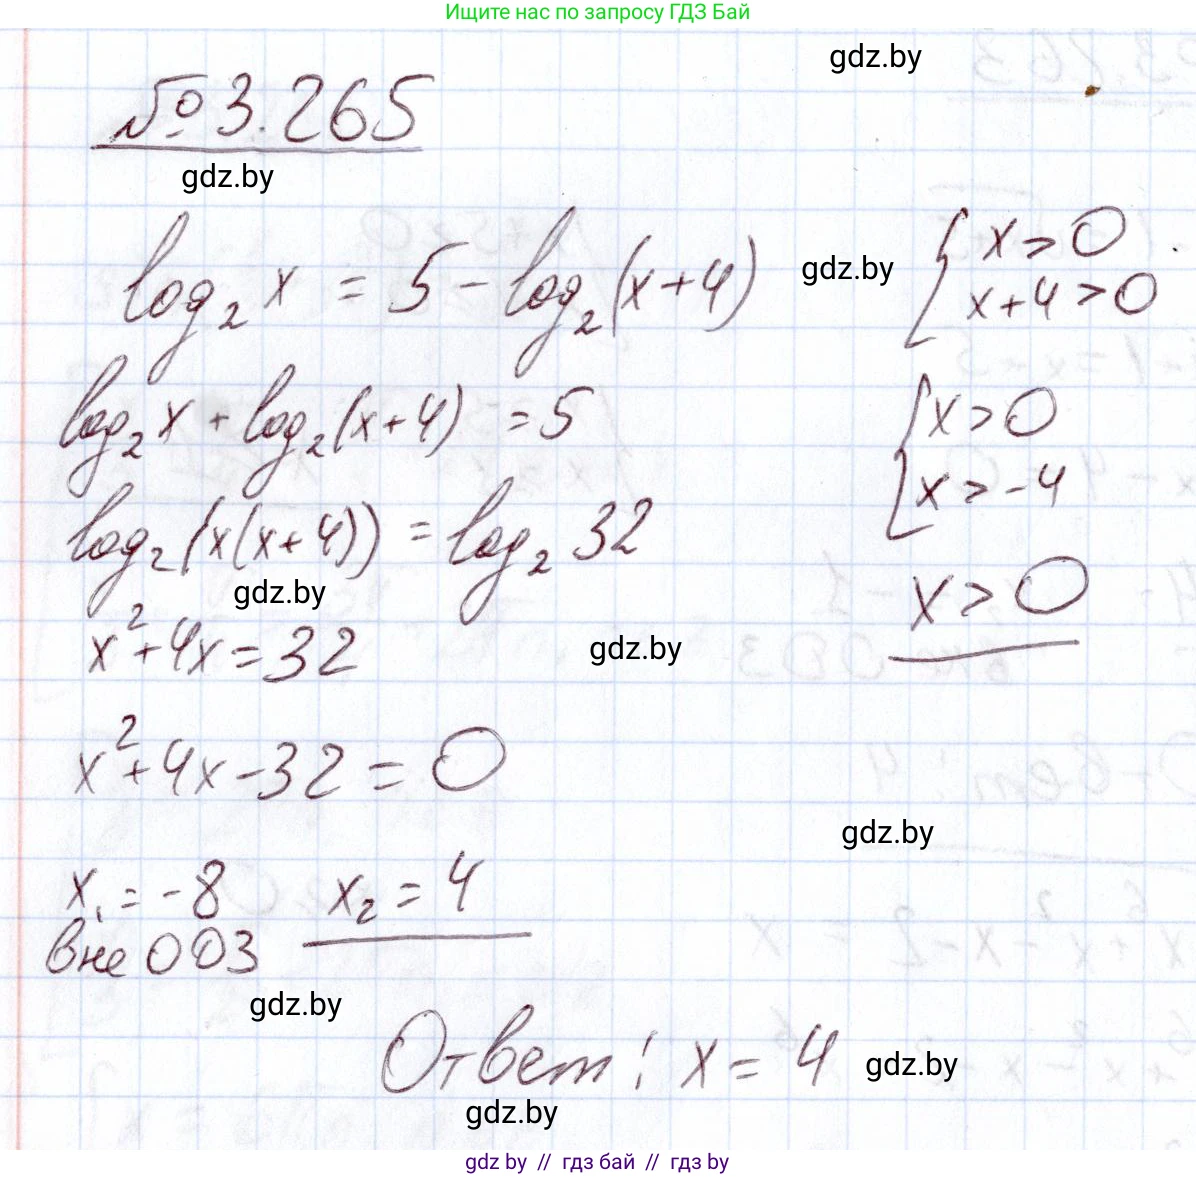 Ищите нас по запросу ГДЗ Бай
gdz.by
№ 3.265
gdz.by
log₂ x = 5 - log₂(x+4)
gdz.by
{ x > 0
x+4 > 0
log₂ x + log₂(x+4) = 5
{ x > 0
x > -4
log₂(x(x+4)) = log₂ 32
gdz.by
x > 0
x² + 4x = 32
gdz.by
x² + 4x - 32 = 0
gdz.by
x₁ = -8 x₂ = 4
вне ООЗ
gdz.by
Ответ: x = 4
gdz.by
gdz.by
gdz by // гдз бай // гдз by